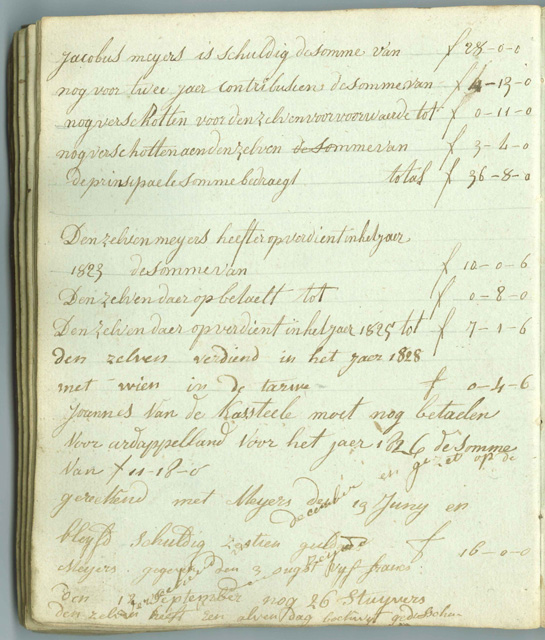 Jacobus meyers is schuldig de somme van f 28-0-0
nog voor twee jaer contributien de somme van f 4-13-0
nog verschotten voor den zelven voor voorwaerde tot f 0-11-0
nog verschotten aen den zelven de somme van f 3-4-0
de prinsipaele somme bedraegt total f 36-8-0
Den zelven meyers heeft er op verdient in het jaer
1823 de somme van f 10-0-6
Den zelven daer op betaelt tot f 0-8-0
Den zelven daer op verdient in het jaer 1825 tot f 7-1-6
den zelven verdiend in het jaer 1828
met wien in de tarwe f 0-4-6
Joannes Van de Kasteele moet nog betaelen
Voor ardappelland Voor het jaer 1826 de somme
Van f 11-18-0
gerekend met Meyers den 19 Juny en
blyft schuldig zestien guldens f 16-0-0
Meyers gegeven den 3 ougst vyf francs
den 12 September nog 26 Stuyvers
den zelven heeft een alven dag